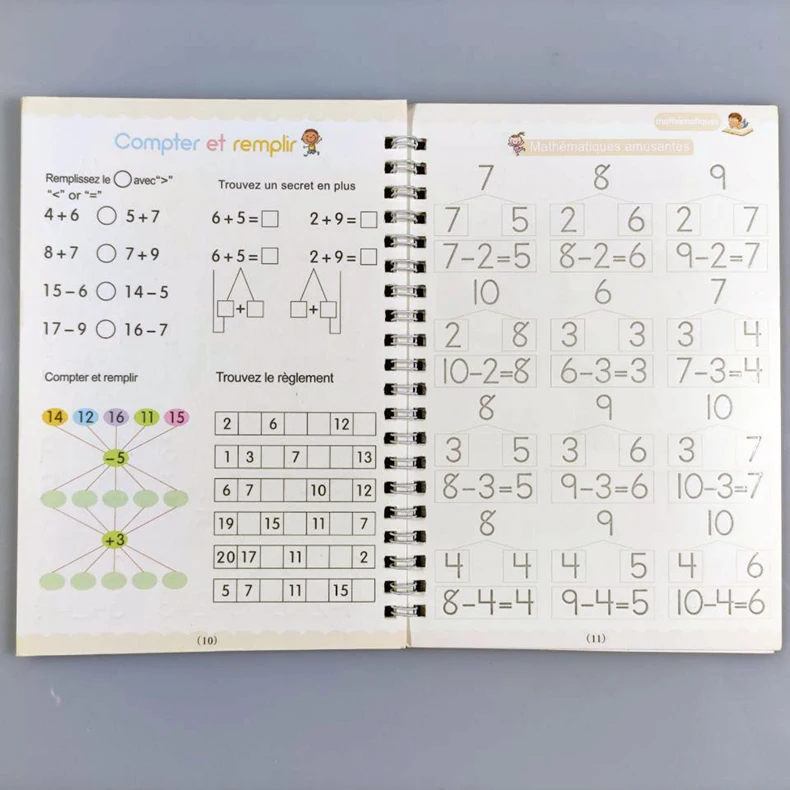 Compter et remplir
Remplissez le ◯ avec“>”
“<” or “=”
4+6 ◯ 5+7
8+7 ◯ 7+9
15−6 ◯ 14−5
17−9 ◯ 16−7
Trouvez un secret en plus
6+5=□ 2+9=□
6+5=□ 2+9=□
□+□ □+□
Compter et remplir
14 12 16 11 15
−5
+3
Trouvez le règlement
2 6 12
1 3 7 13
6 7 10 12
19 15 11 7
20 17 11 2
5 7 11 15
(10)
mathématiques
Mathématiques amusantes
7 8 9
7 5 2 6 2 7
7−2=5 8−2=6 9−2=7
10 6 7
2 8 3 3 3 4
10−2=8 6−3=3 7−3=4
8 9 10
3 5 3 6 3 7
8−3=5 9−3=6 10−3=7
8 9 10
4 4 4 5 4 6
8−4=4 9−4=5 10−4=6
(11)